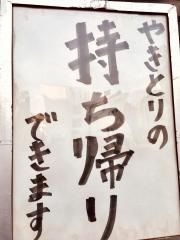 やきとりの
持ち帰り
できます